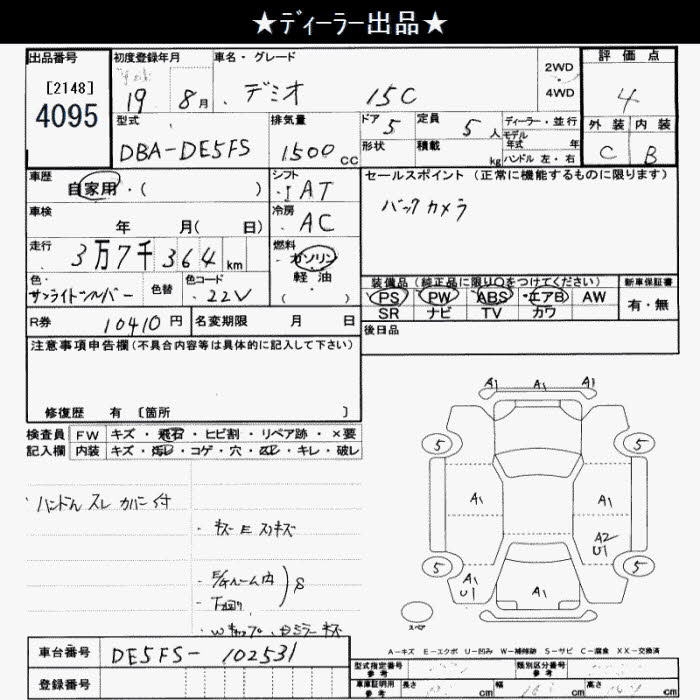 ★ディーラー出品★
出品番号
[2148]
4095
初度登録年月
19 8月
車名・グレード
デミオ 15C
2WD
・
4WD
評価点
4
外装 内装
C B
型式
DBA-DE5FS
排気量
1500cc
ドア 5
形状
定員 5人
積載 kg
ディーラー・並行
モデル年式 年
ハンドル 左・右
車歴
自家用・( )
シフト
I AT
セールスポイント (正常に機能するものに限ります)
バックカメラ
車検
年 月( 日)
冷房
AC
走行
3万7千364km
燃料
ガソリン
軽油
( )
色
サンライトシルバー
色替
色コード
22V
装備品 (純正品に限り○をつけてください)
PS PW ABS エアB AW
SR ナビ TV カワ
新車保証書
有・無
R券
10410円
名変期限 月 日
後日品
注意事項申告欄(不具合内容等は具体的に記入して下さい)
修復歴 有 [箇所 ]
検査員
記入欄
FW キズ・飛石・ヒビ割・リペア跡・×要
内装 キズ・汚レ・コゲ・穴・・キレ・破レ
ハンドル スレ カバー付
・キズ E スリキズ
・E/Gルーム内
・下回り
S
A1 A1 A1
5 5
A1 A1
A2
U1
5 5
A1
U1
A1
スペア
A-キズ E-エクボ U-凹み W-補修跡 S-サビ C-腐食 XX-交換済
車台番号
DE5FS-102531
登録番号
型式指定番号
参考
類別区分番号
参考
車庫証明用
参考
長さ cm
幅 cm
高さ cm